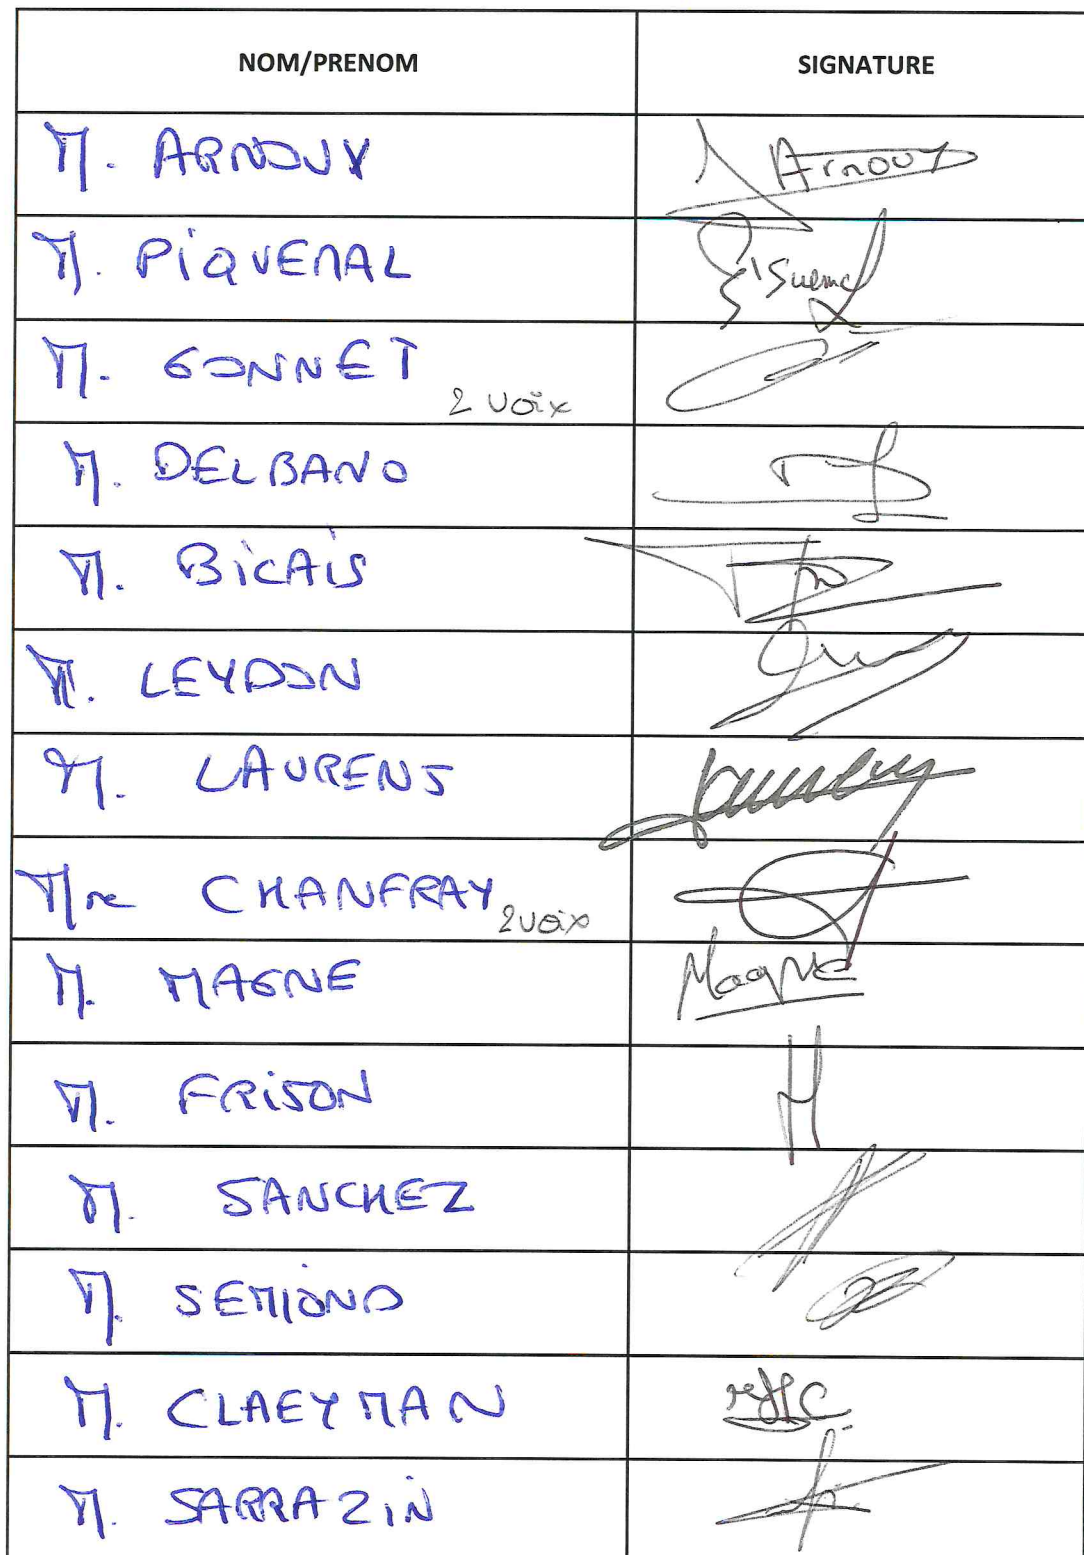 NOM/PRENOM SIGNATURE
M. ARNOUX Arnoux
M. PIQUEMAL Piquemal
M. GONNET 2 voix
M. DELBANO
M. BICAIS
M. LEYDON
M. LAURENS Laurens
Mme CHANFRAY 2 voix
M. MAGNE Magne
M. FRISON
M. SANCHEZ
M. SEMIOND
M. CLAEYMAN
M. SARRAZIN